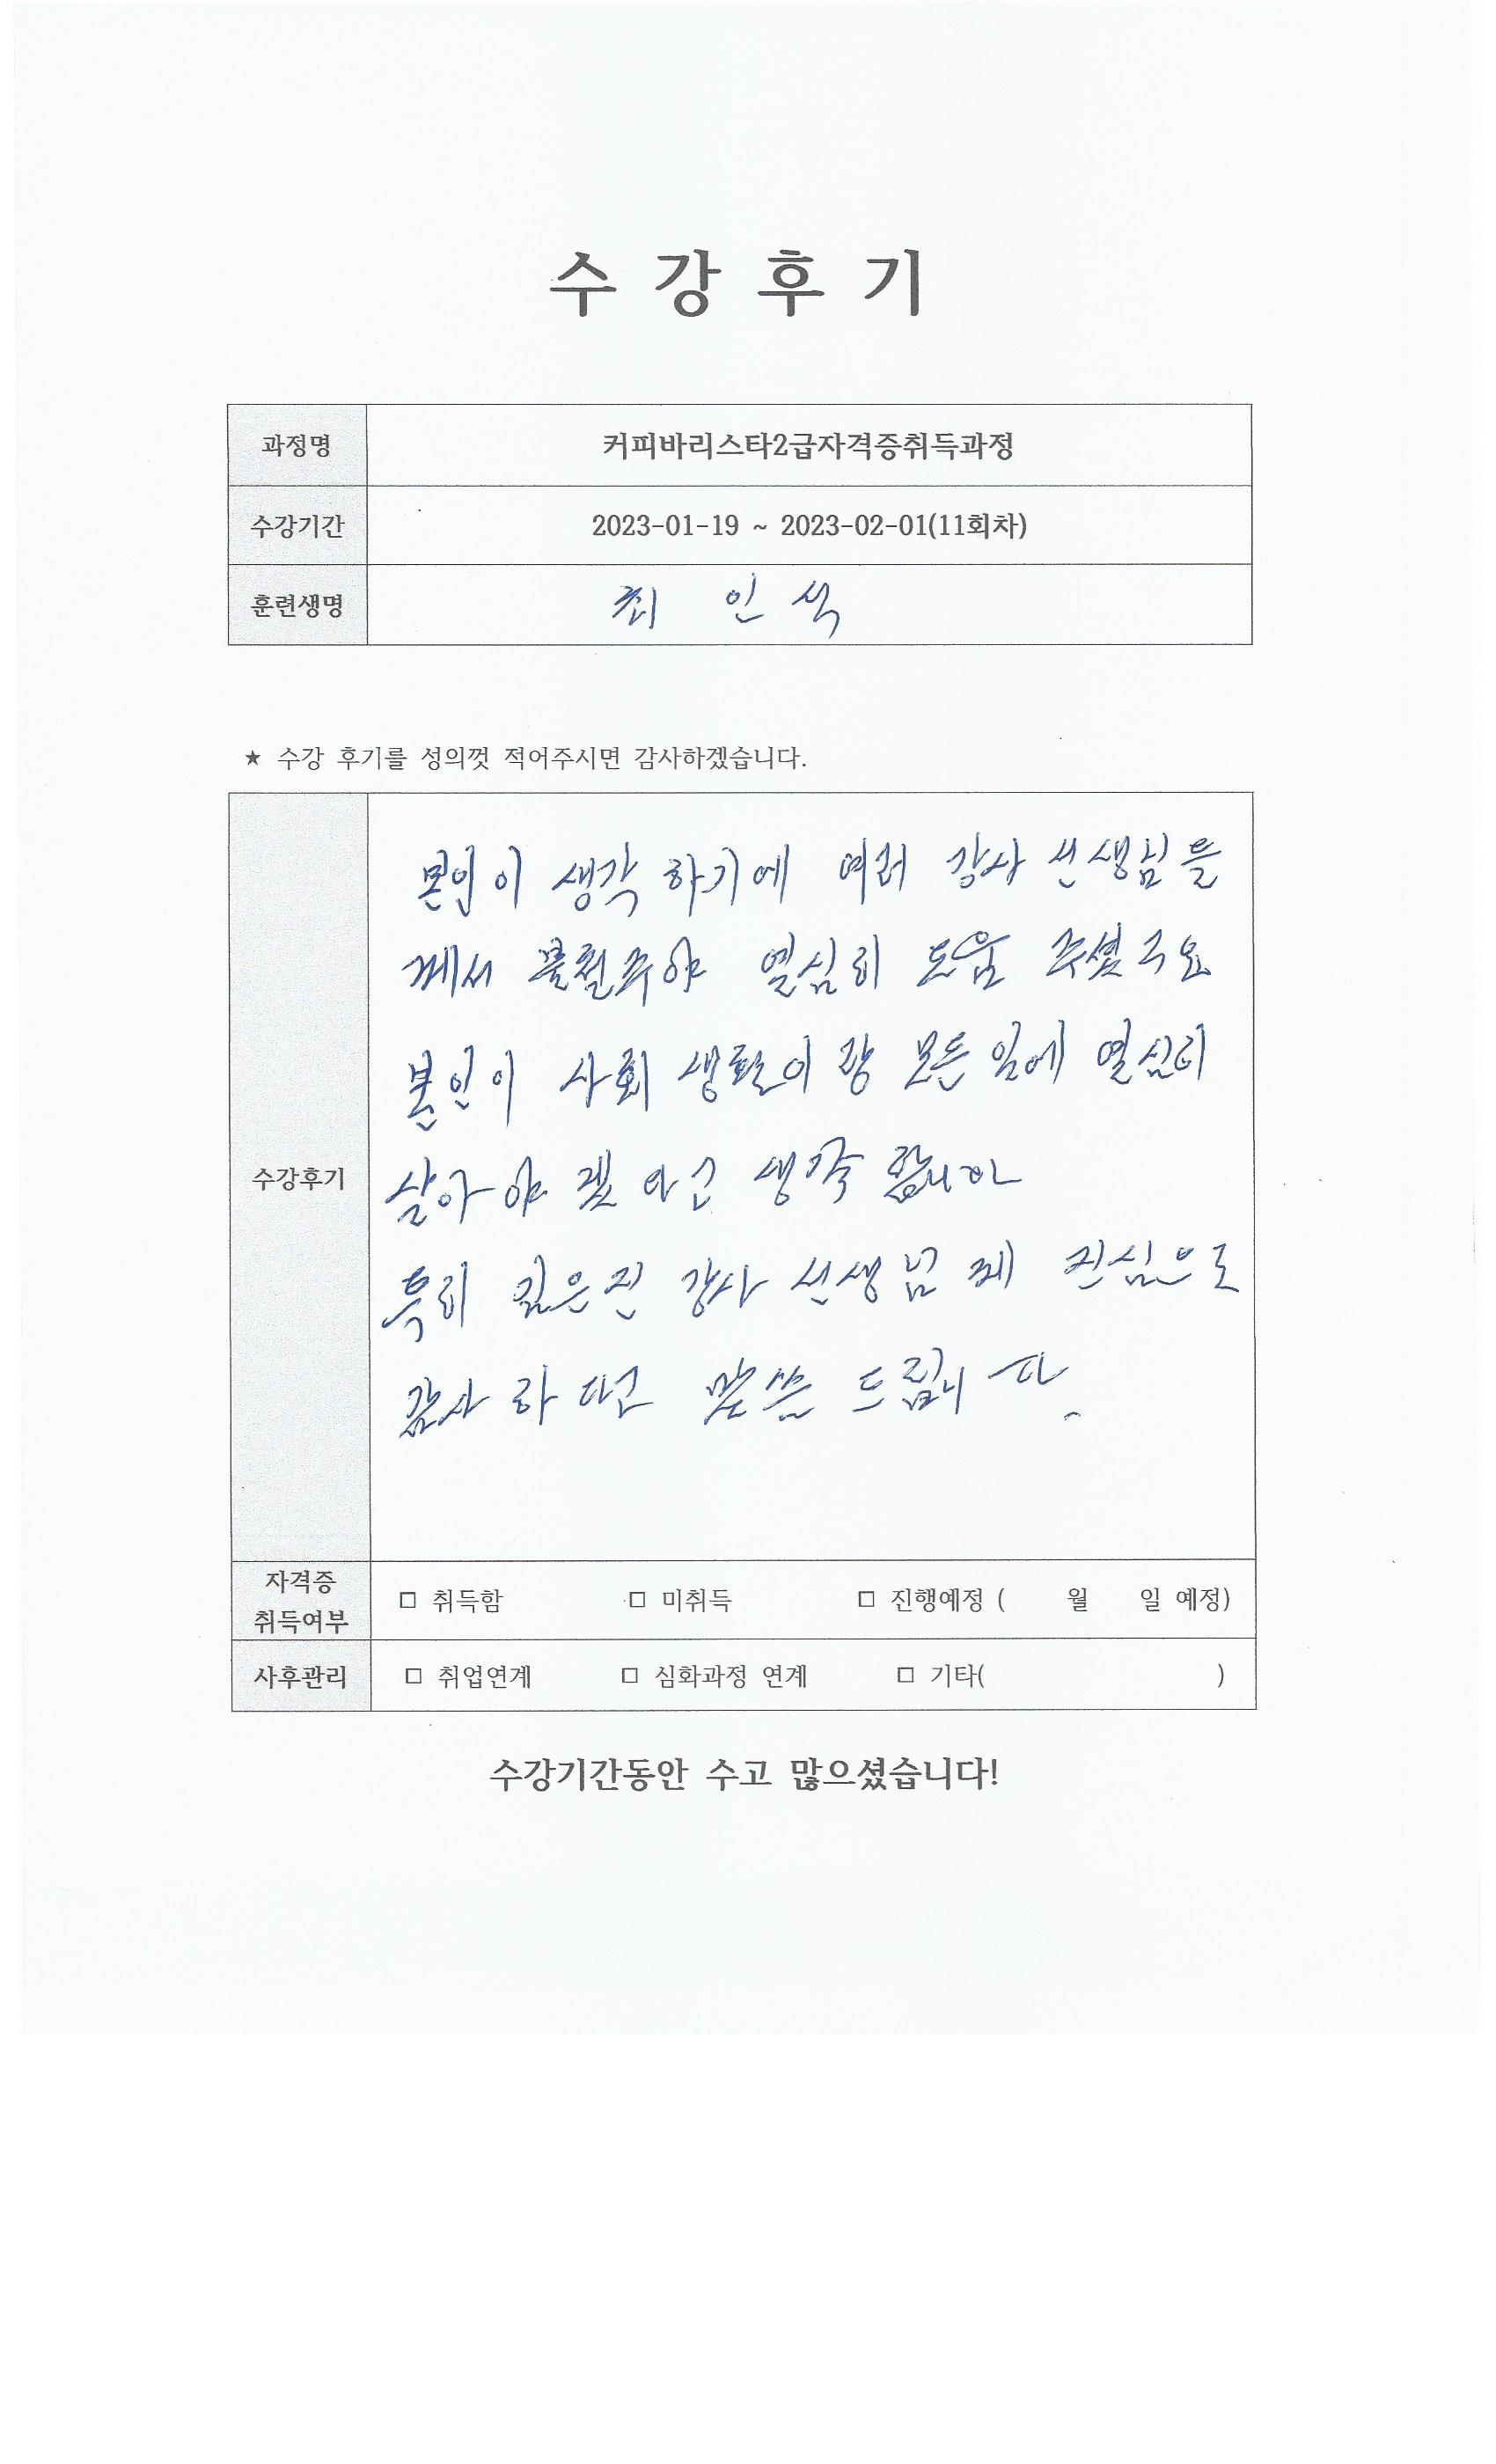 수 강 후 기
과정명 커피바리스타2급자격증취득과정
수강기간 2023-01-19 ~ 2023-02-01(11회차)
훈련생명 최 인 식
★ 수강 후기를 성의껏 적어주시면 감사하겠습니다.
수강후기
본인이 생각 하기에 여러 강사 선생님들
께서 불철주야 열심히 도움 주셨구요
본인이 사회 생활이랑 모든 일에 열심히
살아야 겠다고 생각 합니다
특히 김은진 강사 선생님께 진심으로
감사 하다고 말씀 드립니다.
자격증 취득여부 □ 취득함 □ 미취득 □ 진행예정 ( 월 일 예정)
사후관리 □ 취업연계 □ 심화과정 연계 □ 기타( )
수강기간동안 수고 많으셨습니다!